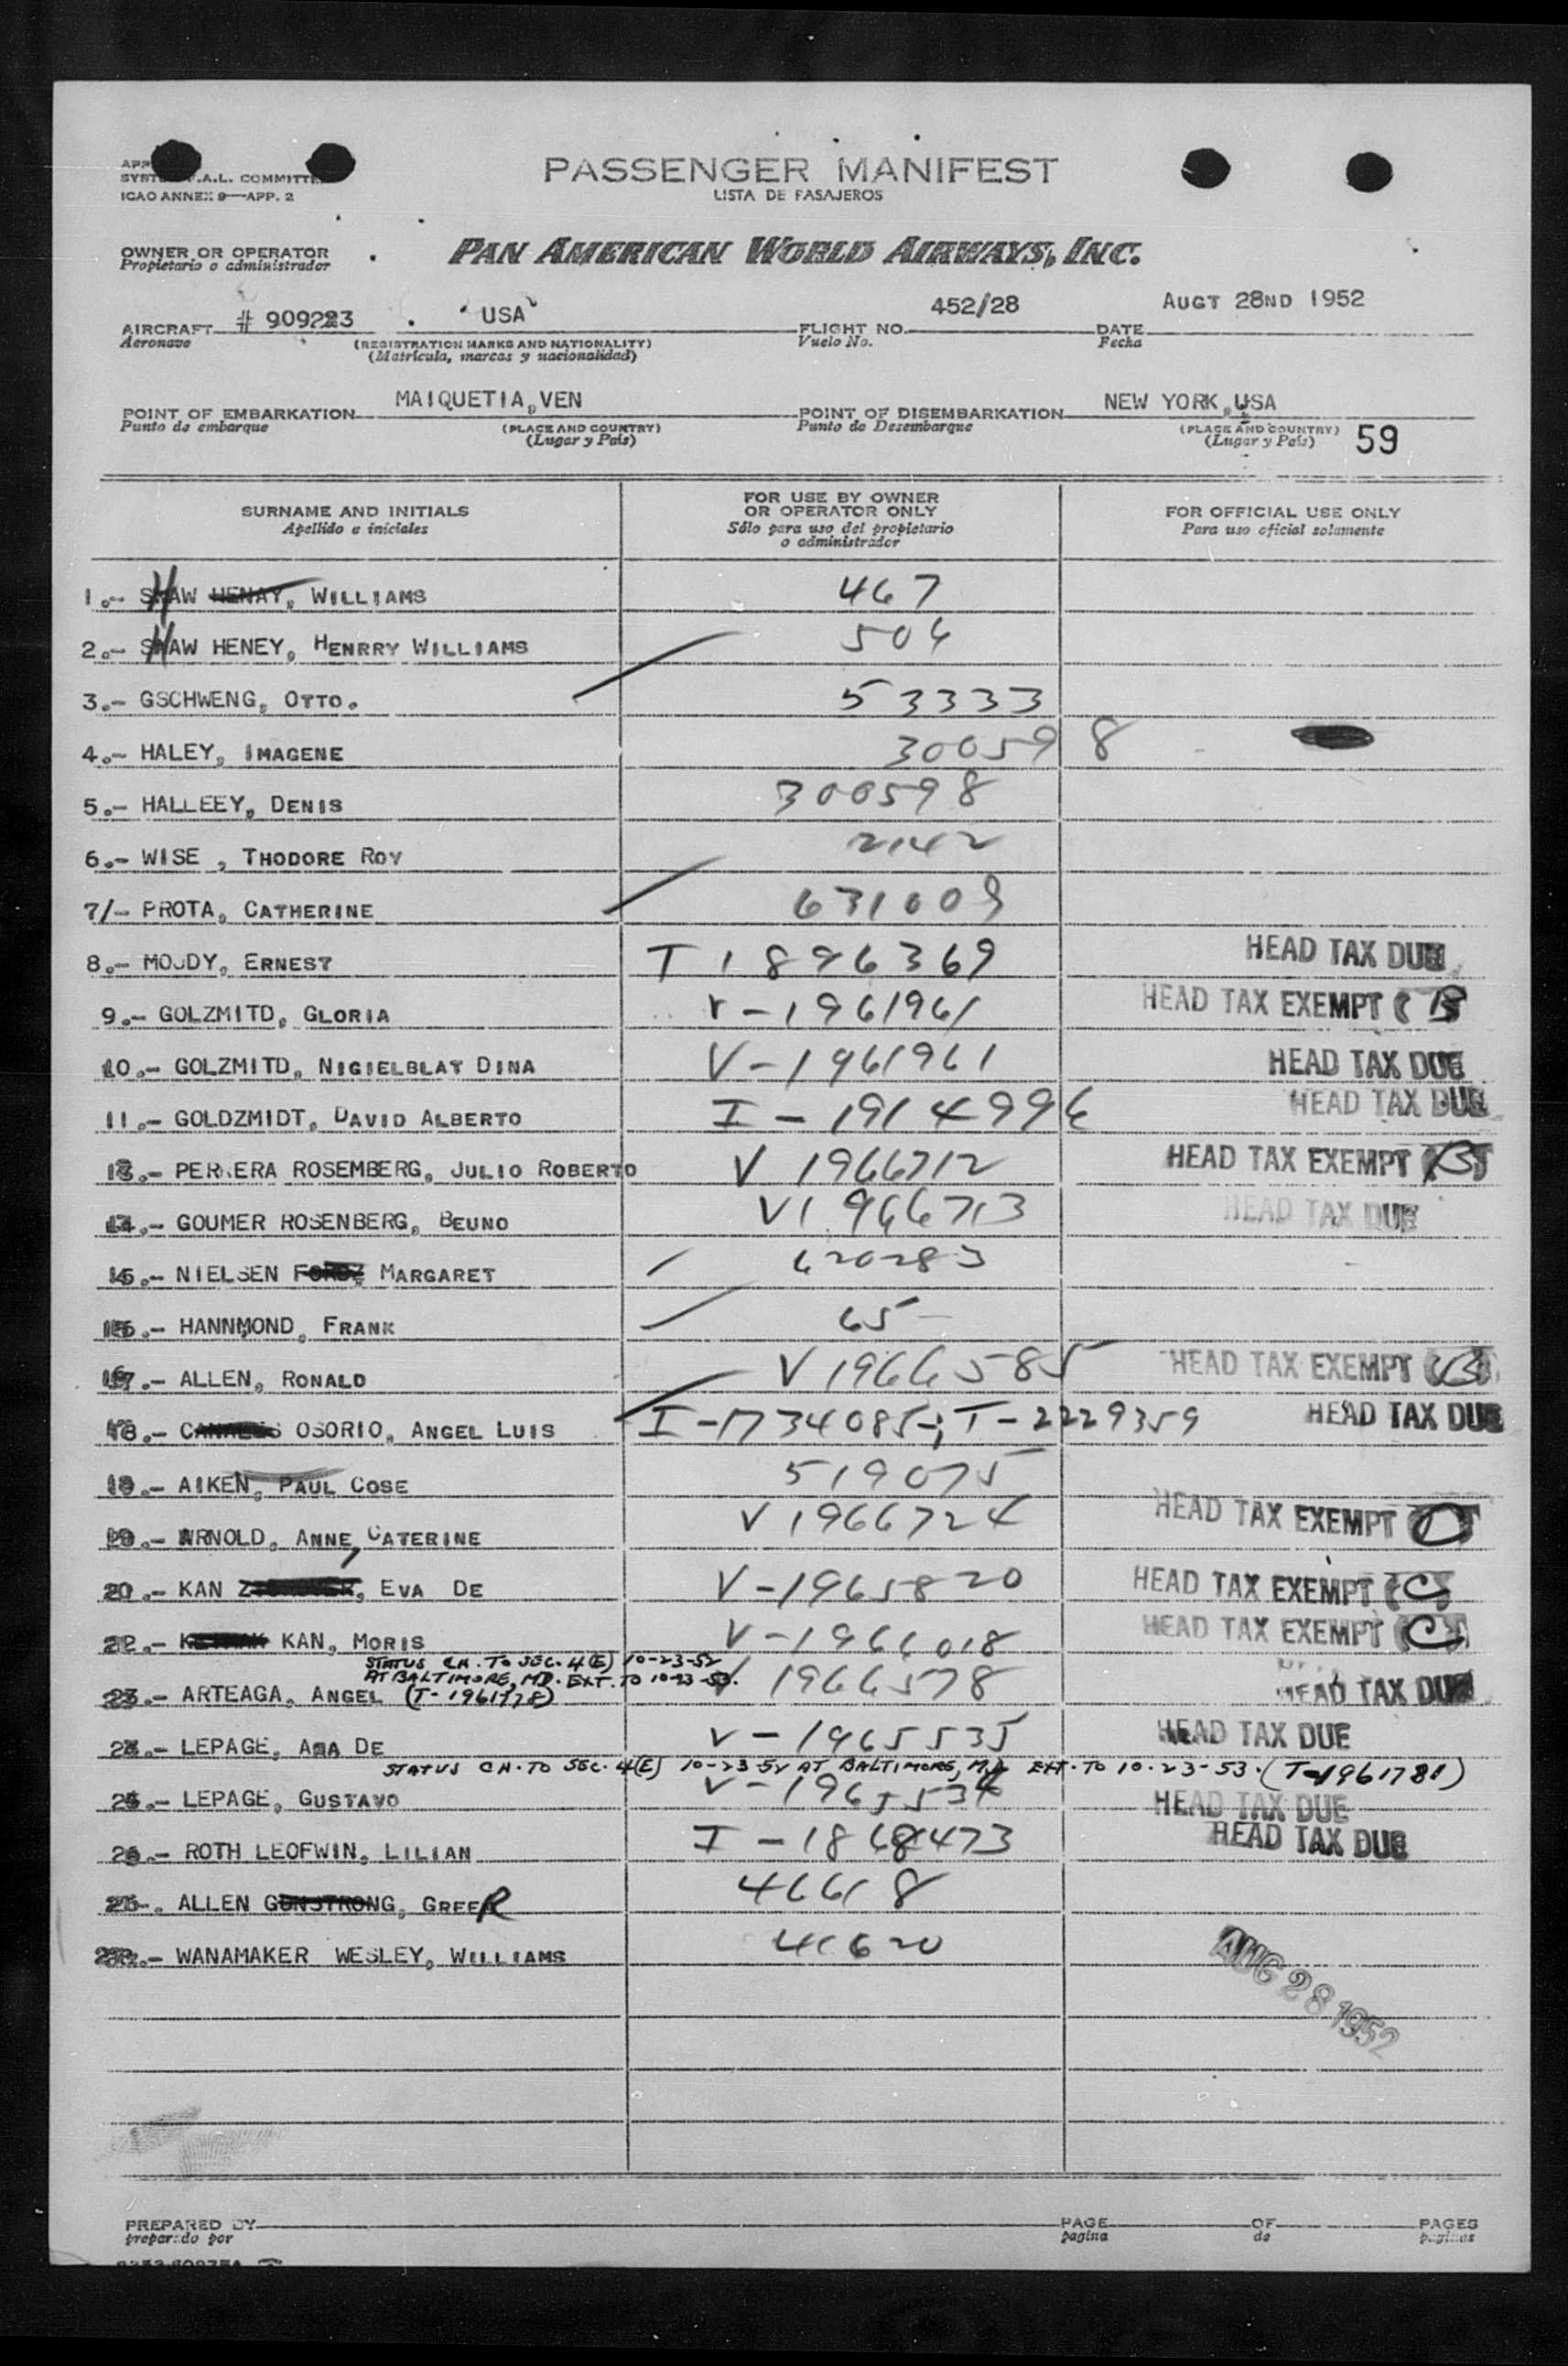 SYST F.A.L. COMMITTE
ICAO ANNEX 9—APP. 2
PASSENGER MANIFEST
LISTA DE PASAJEROS
OWNER OR OPERATOR
Propietario o administrador
PAN AMERICAN WORLD AIRWAYS, INC.
AIRCRAFT # 909223 "USA" FLIGHT NO. 452/28 DATE AUGT 28ND 1952
Aeronave (REGISTRATION MARKS AND NATIONALITY) Vuelo No. Fecha
(Matrícula, marcas y nacionalidad)
POINT OF EMBARKATION MAIQUETIA, VEN POINT OF DISEMBARKATION NEW YORK, USA
Punto de embarque (PLACE AND COUNTRY) Punto de Desembarque (PLACE AND COUNTRY)
(Lugar y País) (Lugar y País) 59
SURNAME AND INITIALS FOR USE BY OWNER OR OPERATOR ONLY FOR OFFICIAL USE ONLY
Apellido e iniciales Sólo para uso del propietario o administrador Para uso oficial solamente
1.- SHAW HENAY, WILLIAMS 467
2.- SHAW HENEY, HENRRY WILLIAMS 506
3.- GSCHWENG, OTTO. 53333
4.- HALEY, IMAGENE 300598
5.- HALLEEY, DENIS 300598
6.- WISE , THODORE ROY 2142
7/- PROTA, CATHERINE 631009
8.- MOODY, ERNEST T 1896369 HEAD TAX DUE
9.- GOLZMITD, GLORIA V-1961961 HEAD TAX EXEMPT B
10.- GOLZMITD, NIGIELBLAT DINA V-1961961 HEAD TAX DUE
11.- GOLDZMIDT, DAVID ALBERTO I-1914996 HEAD TAX DUE
PERRERA ROSEMBERG, JULIO ROBERTO V 1966712 HEAD TAX EXEMPT B
GOUMER ROSENBERG, BEUNO V1966713 HEAD TAX DUE
NIELSEN MARGARET 620283
HANNMOND, FRANK 65-
ALLEN, RONALD V 1966585 HEAD TAX EXEMPT B
OSORIO, ANGEL LUIS I-1734085-; T-2229359 HEAD TAX DUE
AIKEN, PAUL COSE 519075
ARNOLD, ANNE, CATERINE V 1966724 HEAD TAX EXEMPT
20.- KAN EVA DE V-1965820 HEAD TAX EXEMPT C
KAN, MORIS V-1966018 HEAD TAX EXEMPT C
STATUS CH. TO SEC. 4(E) 10-23-52
AT BALTIMORE, MD. EXT. TO 10-23-53.
ARTEAGA, ANGEL (T-1961778) V 1966578 HEAD TAX DUE
LEPAGE, ANA DE V-1965535 HEAD TAX DUE
STATUS CH. TO SEC. 4(E) 10-23-52 AT BALTIMORE, MD. EXT. TO 10-23-53. (T-1961781)
LEPAGE, GUSTAVO V-1965534 HEAD TAX DUE
ROTH LEOFWIN, LILIAN I-1868473 HEAD TAX DUE
ALLEN GUNSTRONG, GREER 46618
WANAMAKER WESLEY, WILLIAMS 41620
AUG 28 1952
PREPARED BY PAGE OF PAGES
preparado por pagina de paginas